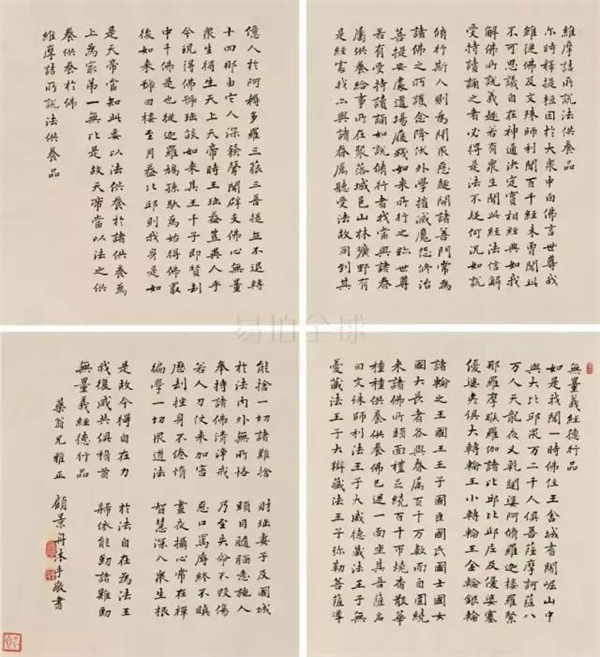 維摩詰所說法供養品
尔時釋提桓因於大衆中白佛言世尊我
雖從佛及文殊師利聞百千經未曾聞此
不可思議自在神通決定實相經典如我
解佛所說義趣若有衆生聞此經法信解
受持讀誦之者必得是法不疑何況如說
脩行斯人則為閉衆惡趣開諸善門常為
諸佛之所護念降伏外學摧滅魔怨脩治
菩提安處道場履踐如來所行之跡世尊
若有受持讀誦如說脩行者我當與諸眷
屬供養給事所在聚落城邑山林曠野有
是經處我亦與諸眷屬聽受法故同到其
億人於阿耨多羅三藐三菩提立不退轉
十四那由它人深發聲聞辟支佛心無量
衆生得生天上天帝時王珤蓋豈異人乎
今現得佛號珤談如來其王千子即賢劫
中千佛是也從迦羅鳩孫馱為始得佛最
後如來號曰樓至月蓋比邱則我身是如
是天帝當知此要以法供養於諸供養為
上為冣第一無比是故天帝當以法之供
養供養於佛
維摩詰所說法供養品
無量義經德行品
如是我聞一時佛住王舍城耆闍崛山中
與大比邱衆万二千人俱菩薩摩訶薩八
万人天龍夜叉乾闥婆阿脩羅迦樓羅緊
那羅摩睺羅伽諸比邱比邱尼及優婆塞
優婆夷俱大轉輪王小轉輪王金輪銀輪
諸輪之王國王王子國臣國民國士國女
國大長者各與眷屬百千万數而自圍繞
来詣佛所頭面禮足繞百千帀燒香散華
種種供養供養佛已退一面坐其菩薩名
曰文殊師利法王子大威德藏法王子無
憂藏法王子大辯藏法王子弥勒菩薩導
能捨一切諸難捨 財珤妻子及國城
於法內外無所悋 頭目髓腦悉施人
奉持諸佛清淨戒 乃至失命不毀傷
若人刀仗来加害 惡口罵辱終不瞋
歷劫挫身不倦惰 晝夜攝心常在禪
徧學一切衆道法 智慧深入衆生根
是故今得自在力 於法自在為法王
我復咸共俱稽首 歸依能勤諸難勤
無量義經德行品
藥翁兄雅正 顧景舟沐手敬書
易拍全球